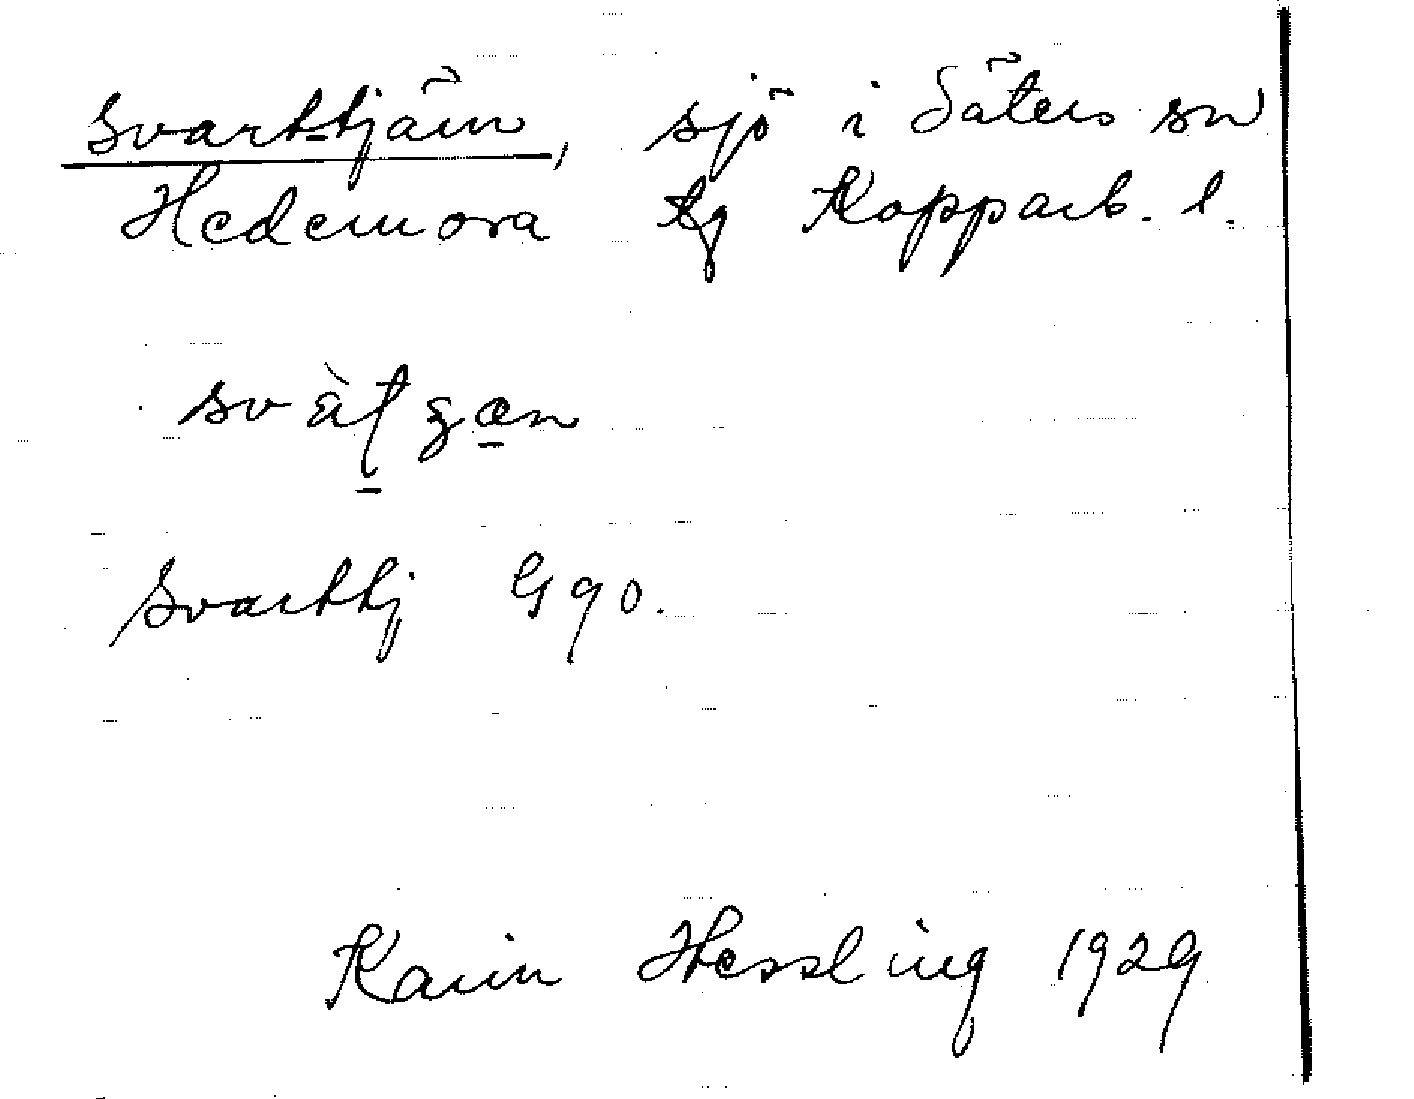 Svarttjärn, sjö i Säters sn
Hedemora tg Kopparb. l.
Svarttj G 90.
Karin Hessling 1929